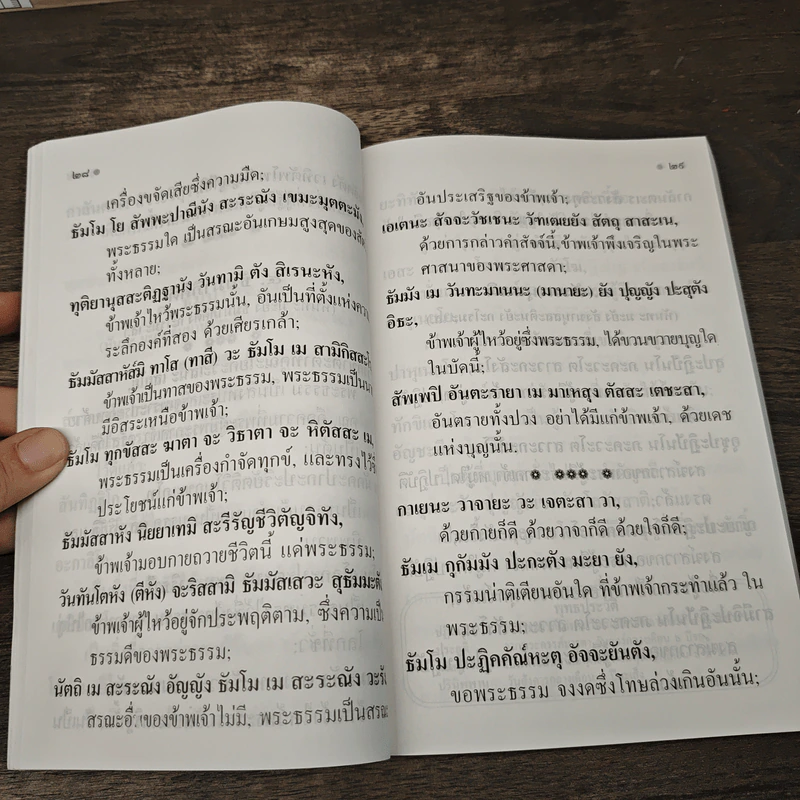 ๒๘
เครื่องขจัดเสียซึ่งความมืด;
ธัมโม โย สัพพะปาณีนัง สะระณัง เขมะมุตตะมัง,
พระธรรมใด เป็นสรณะอันเกษมสูงสุดของสัต
ทั้งหลาย;
ทุติยานุสสะติฏฐานัง วันทามิ ตัง สิเรนะหัง,
ข้าพเจ้าไหว้พระธรรมนั้น, อันเป็นที่ตั้งแห่งควา
ระลึกองค์ที่สอง ด้วยเศียรเกล้า;
ธัมมัสสาหัสมิ ทาโส (ทาสี) วะ ธัมโม เม สามิกิสสะโ
ข้าพเจ้าเป็นทาสของพระธรรม, พระธรรมเป็นนา
มีอิสระเหนือข้าพเจ้า;
ธัมโม ทุกขัสสะ ฆาตา จะ วิธาตา จะ หิตัสสะ เม,
พระธรรมเป็นเครื่องกำจัดทุกข์, และทรงไว้ซึ่
ประโยชน์แก่ข้าพเจ้า;
ธัมมัสสาหัง นิยยาเทมิ สะรีรัญชีวิตัญจิทัง,
ข้าพเจ้ามอบกายถวายชีวิตนี้ แด่พระธรรม;
วันทันโตหัง (ตีหัง) จะริสสามิ ธัมมัสเสวะ สุธัมมะตัง
ข้าพเจ้าผู้ไหว้อยู่จักประพฤติตาม, ซึ่งความเป็
ธรรมดีของพระธรรม;
นัตถิ เม สะระณัง อัญญัง ธัมโม เม สะระณัง วะรัง
สรณะอื่นของข้าพเจ้าไม่มี, พระธรรมเป็นสรณะ
๒๙
อันประเสริฐของข้าพเจ้า;
เอเตนะ สัจจะวัชเชนะ วัฑเฒยยัง สัตถุ สาสะเน,
ด้วยการกล่าวคำสัจจ์นี้, ข้าพเจ้าพึงเจริญในพระ
ศาสนาของพระศาสดา;
ธัมมัง เม วันทะมาเนนะ (มานายะ) ยัง ปุญญัง ปะสุตัง
อิธะ,
ข้าพเจ้าผู้ไหว้อยู่ซึ่งพระธรรม, ได้ขวนขวายบุญใด
ในบัดนี้;
สัพเพปิ อันตะรายา เม มาเหสุง ตัสสะ เตชะสา,
อันตรายทั้งปวง อย่าได้มีแก่ข้าพเจ้า, ด้วยเดช
แห่งบุญนั้น.
กาเยนะ วาจายะ วะ เจตะสา วา,
ด้วยกายก็ดี ด้วยวาจาก็ดี ด้วยใจก็ดี;
ธัมเม กุกัมมัง ปะกะตัง มะยา ยัง,
กรรมน่าติเตียนอันใด ที่ข้าพเจ้ากระทำแล้ว ใน
พระธรรม;
ธัมโม ปะฏิคคัณ๎หะตุ อัจจะยันตัง,
ขอพระธรรม จงงดซึ่งโทษล่วงเกินอันนั้น;